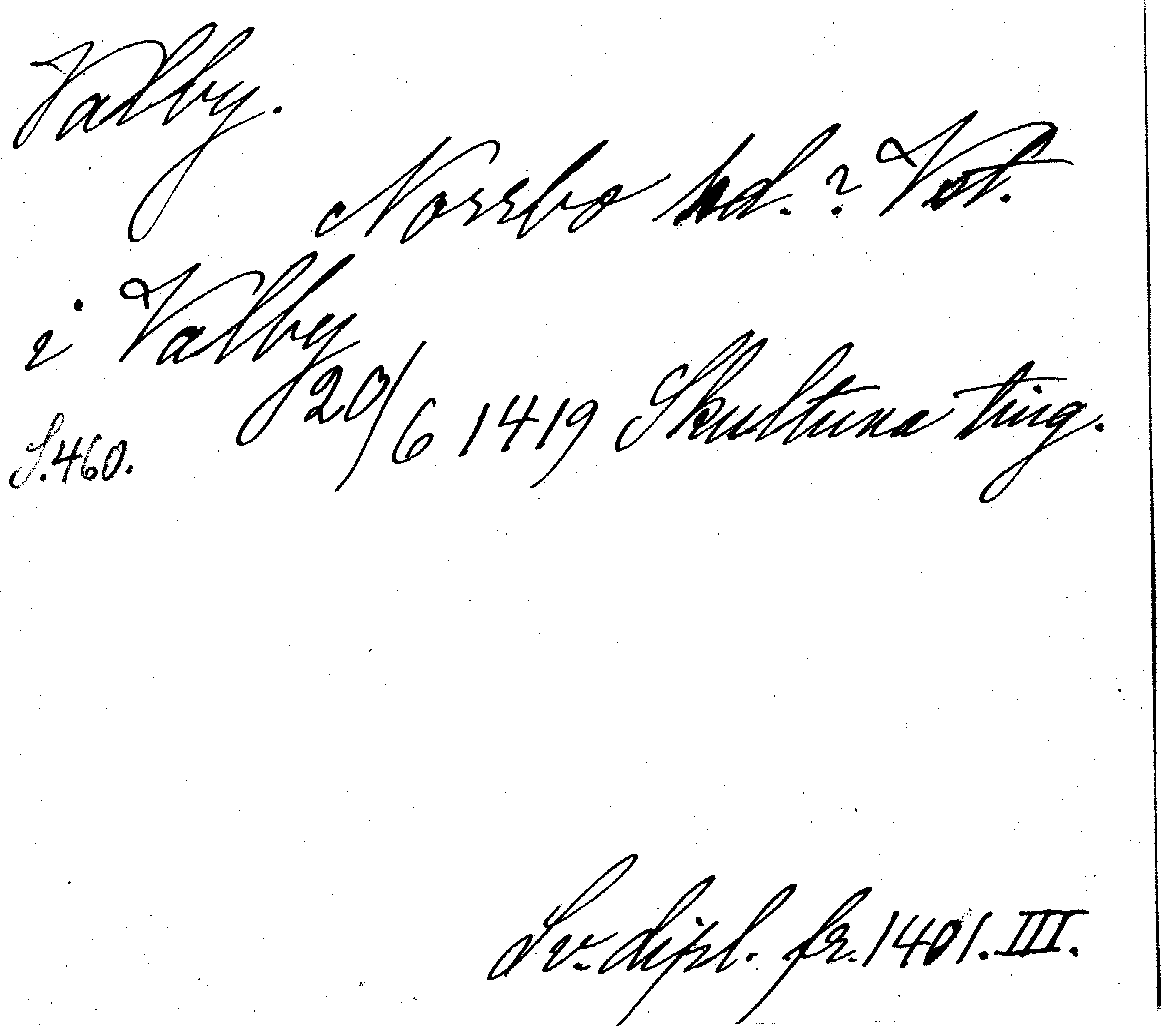 Valby.
Norrbo hd. ? Vst.
i Valby
20/6 1419 Skultuna ting.
S. 460.
Sv. dipl. fr. 1401. III.